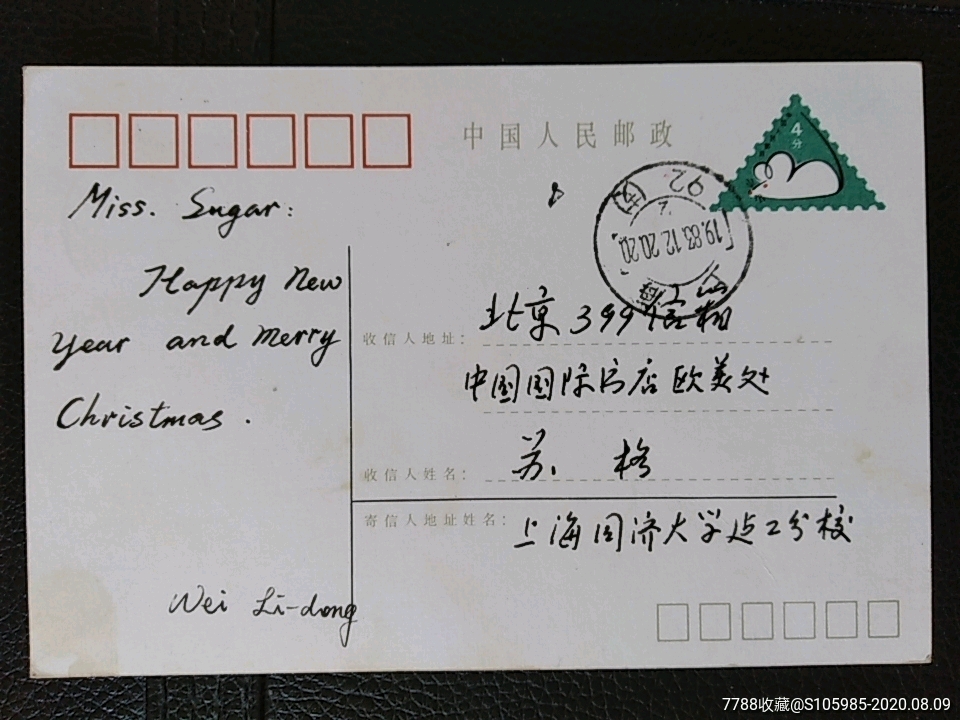 中国人民邮政
4
分
上海
19.83.12.20.20
92
Miss. Sugar:
Happy New
Year and Merry
Christmas.
Wei Li-dong
收信人地址：
北京399信箱
中国国际书店欧美处
收信人姓名：
苏格
寄信人地址姓名：
上海同济大学
分校
7788收藏@S105985-2020.08.09